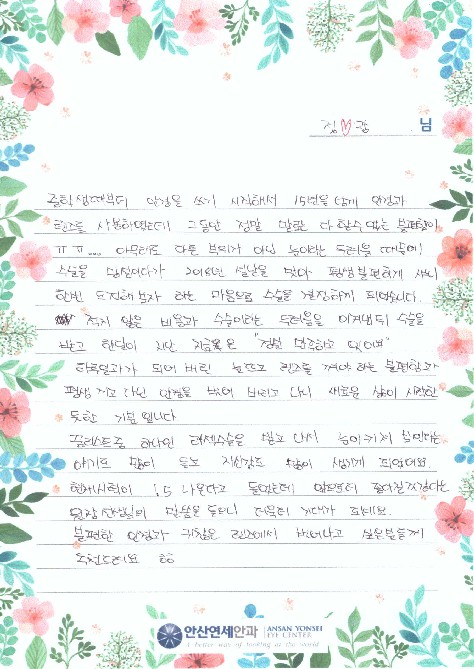 정♡감 님
중학생때부터 안경을 쓰기 시작해서 15년을 넘게 안경과
렌즈를 사용하였는데 그동안 정말 말로는 다 할수 없는 불편함이
ㅠㅠ... 아무래도 다른 부위가 아닌 눈이라는 두려움 때문에
수술을 망설이다가 2018년 설날을 맞아 평생 불편하게 사니
한번 도전해보자 하는 마음으로 수술을 결정하게 되었습니다.
적지 않은 비용과 수술이라는 두려움을 이겨낸뒤 수술을
받고 한달이 지난 지금은 "정말 만족하고 있어요"
하루일과가 되어 버린 눈뜨고 렌즈를 껴야 하는 불편함과
평생 끼고 다닌 안경을 벗어 버리고 나니 새로운 삶이 시작된
듯한 기분 입니다
하나인 라섹수술을 받고 나니 눈이 커져 보인다는
얘기도 많이 듣고 자신감도 많이 생기게 되었어요.
현재시력이 1.5 나온다고 들었는데 앞으로더 좋아질꺼라는
원장선생님의 말씀을 들으니 더욱더 기대가 되네요.
불편한 안경과 귀찮은 렌즈에서 벗어나고 싶은분들께
추천드려요
안산연세안과 ANSAN YONSEI EYE CENTER
A better way of looking at the world